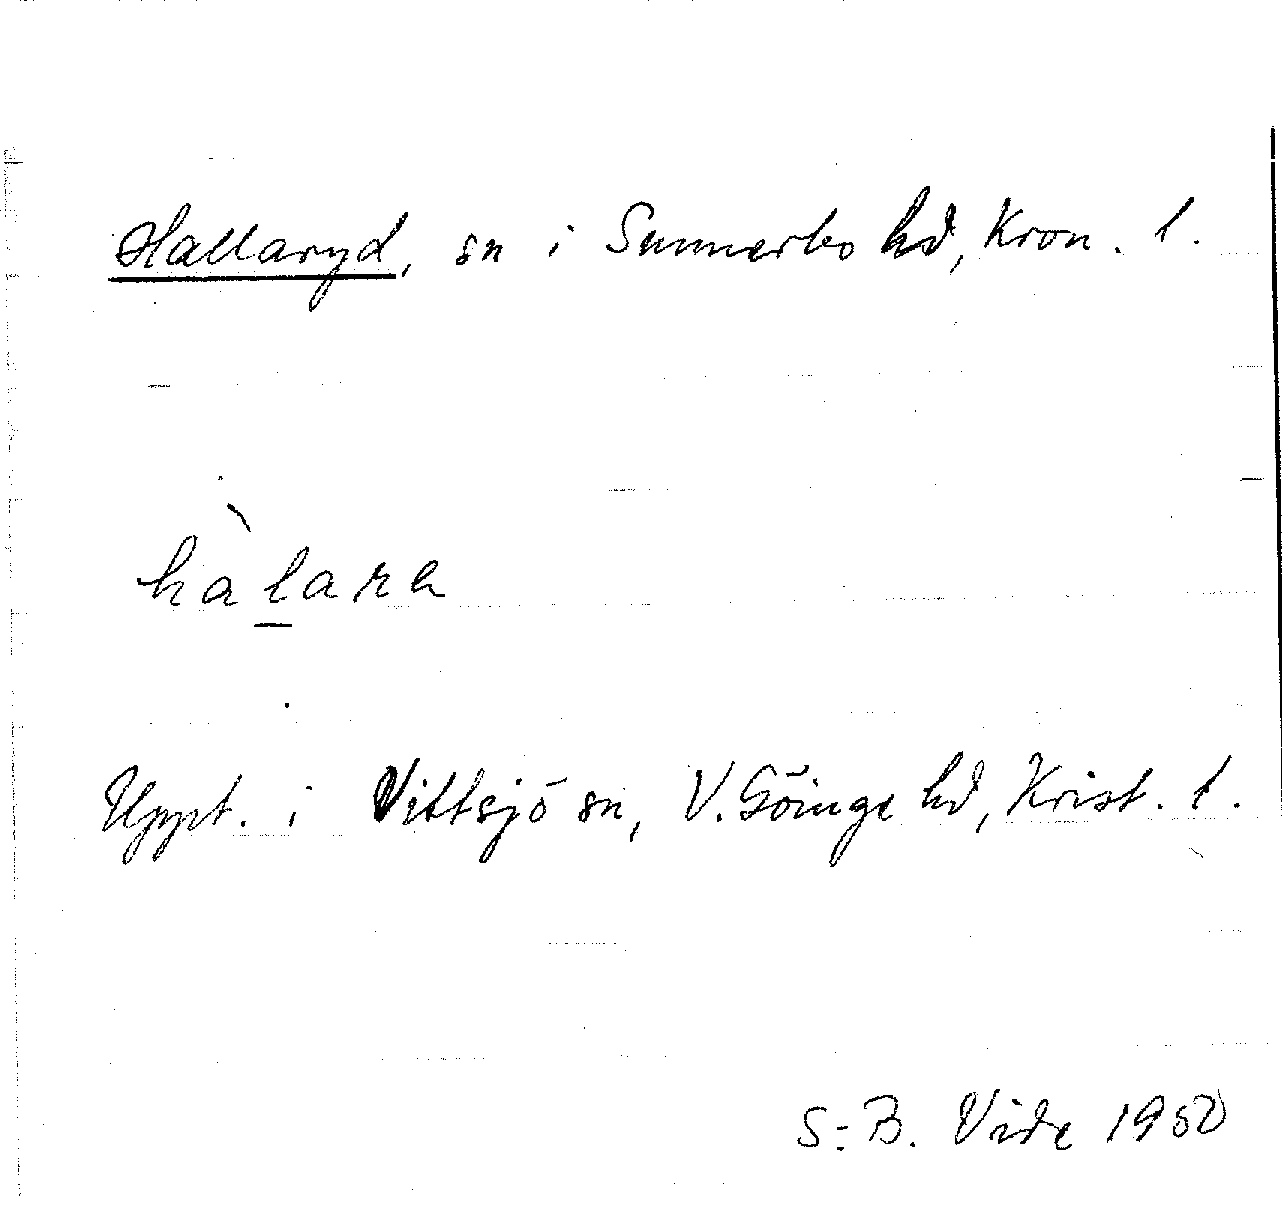 Hallaryd, sn i Sunnerbo hd, Kron. l.
hàlara
Uppt. i Vittsjö sn, V. Göinge hd, Krist. l.
S:B. Vide 1950